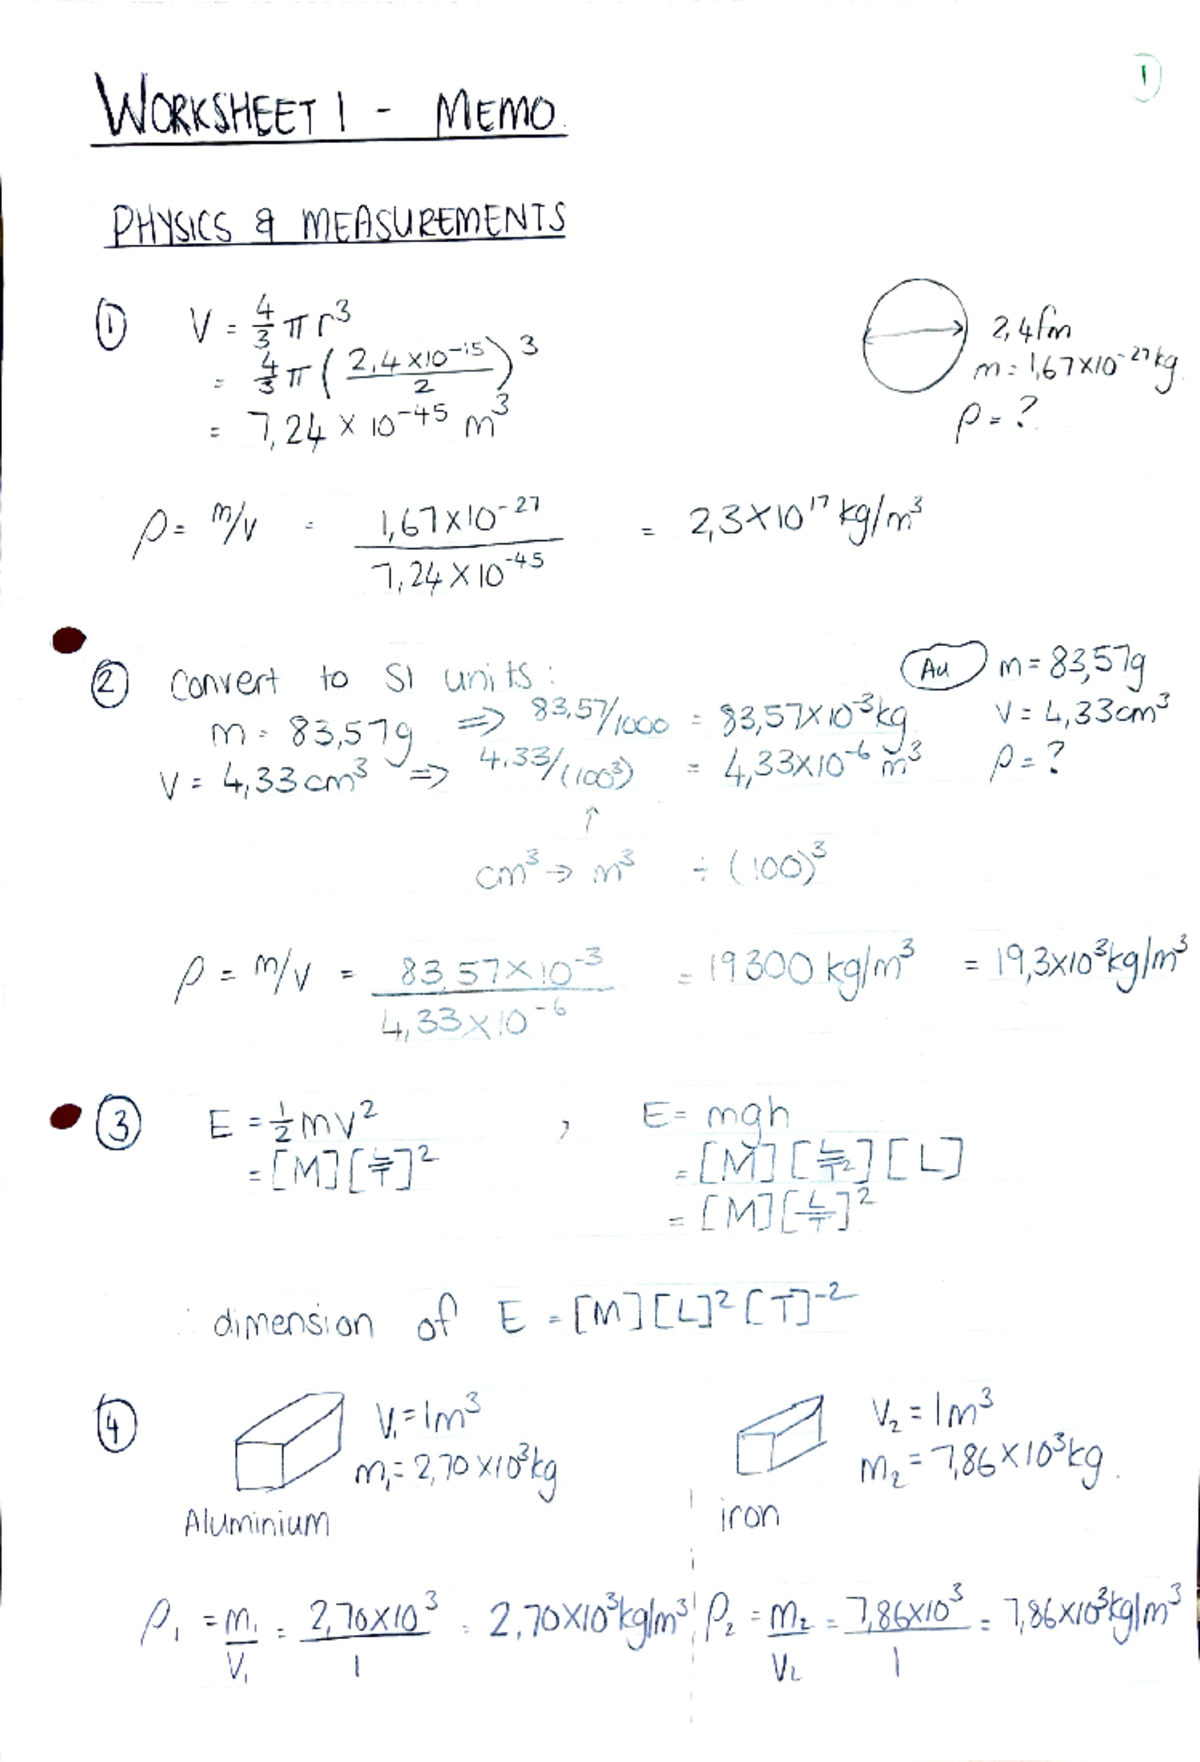 1
WORKSHEET 1 - MEMO.
PHYSICS & MEASUREMENTS
① V = 4/3 π r³
= 4/3 π (2,4×10⁻¹⁵/2)³
= 7,24 × 10⁻⁴⁵ m³
2,4fm
m = 1,67×10⁻²⁷kg
ρ = ?
ρ = m/V = 1,67×10⁻²⁷ / 7,24×10⁻⁴⁵ = 2,3×10¹⁷ kg/m³
② Convert to SI units:
m = 83,57g ⇒ 83,57/1000 = 83,57×10⁻³kg
V = 4,33cm³ ⇒ 4,33/(100³) = 4,33×10⁻⁶ m³
↑
cm³ → m³ ÷ (100)³
Au m = 83,57g
V = 4,33cm³
ρ = ?
ρ = m/V = 83,57×10⁻³ / 4,33×10⁻⁶ = 19300 kg/m³ = 19,3×10³kg/m³
③ E = ½mv² , E = mgh
= [M][L/T]² = [M][L/T²][L]
= [M][L/T]²
∴ dimension of E = [M][L]²[T]⁻²
④ V₁ = 1m³ V₂ = 1m³
m₁ = 2,70×10³kg m₂ = 7,86×10³kg.
Aluminium iron
ρ₁ = m₁/V₁ = 2,70×10³/1 = 2,70×10³kg/m³ ρ₂ = m₂/V₂ = 7,86×10³/1 = 7,86×10³kg/m³